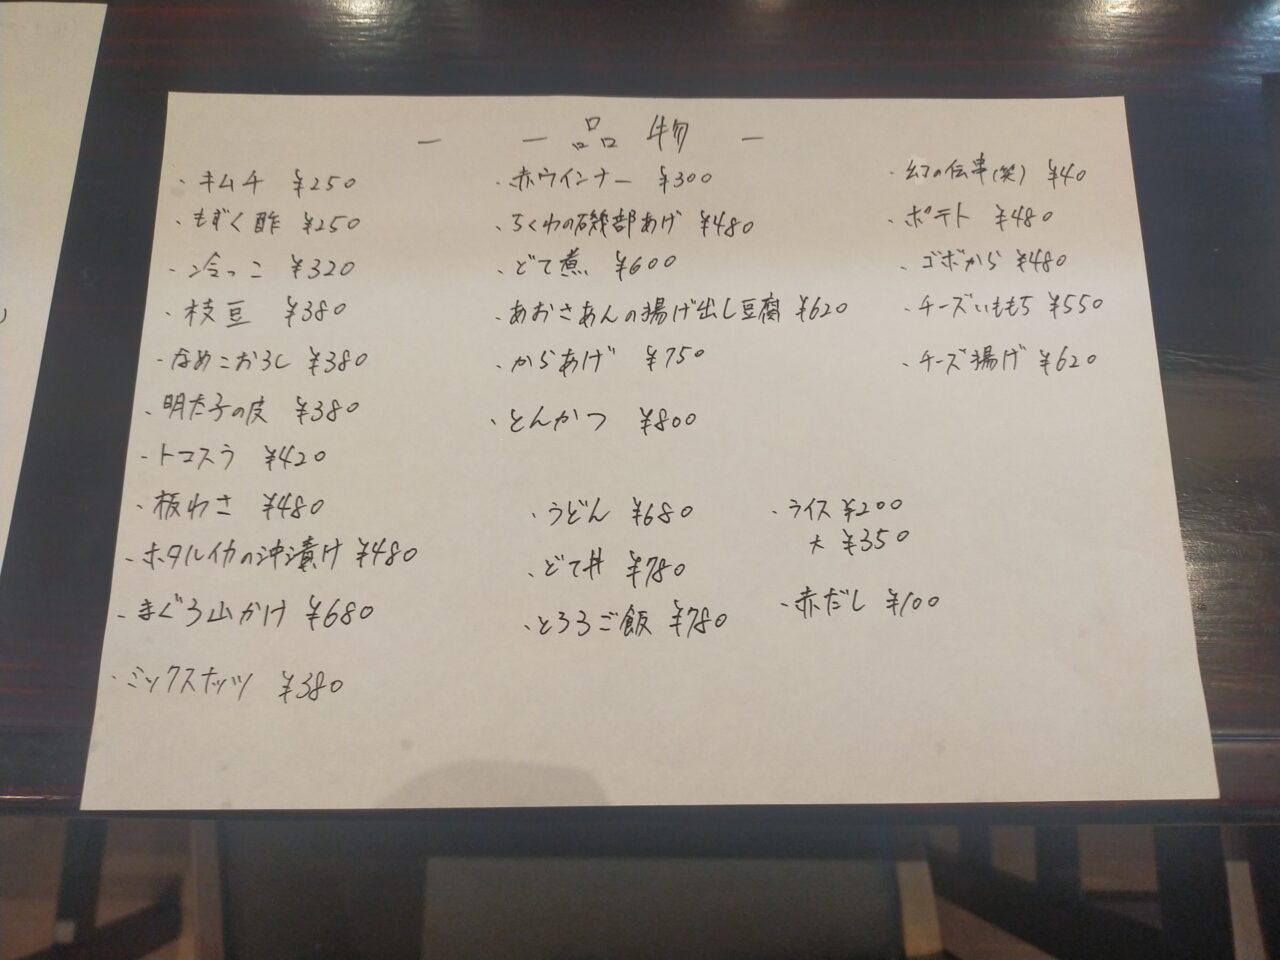 - 一品物 -
・キムチ ¥250
・もずく酢 ¥250
・冷っこ ¥320
・枝豆 ¥380
・なめこおろし ¥380
・明太子の皮 ¥380
・トマスラ ¥420
・板わさ ¥480
・ホタルイカの沖漬け ¥480
・まぐろ山かけ ¥680
・ミックスナッツ ¥380
・赤ウインナー ¥300
・ちくわの磯部あげ ¥480
・どて煮 ¥600
・あおさあんの揚げ出し豆腐 ¥620
・からあげ ¥750
・とんかつ ¥800
・うどん ¥680
・どて丼 ¥780
・とろろご飯 ¥780
・幻の伝串(笑) ¥40
・ポテト ¥480
・ゴボから ¥480
・チーズいももち ¥550
・チーズ揚げ ¥620
・ライス ¥200
大 ¥350
・赤だし ¥100